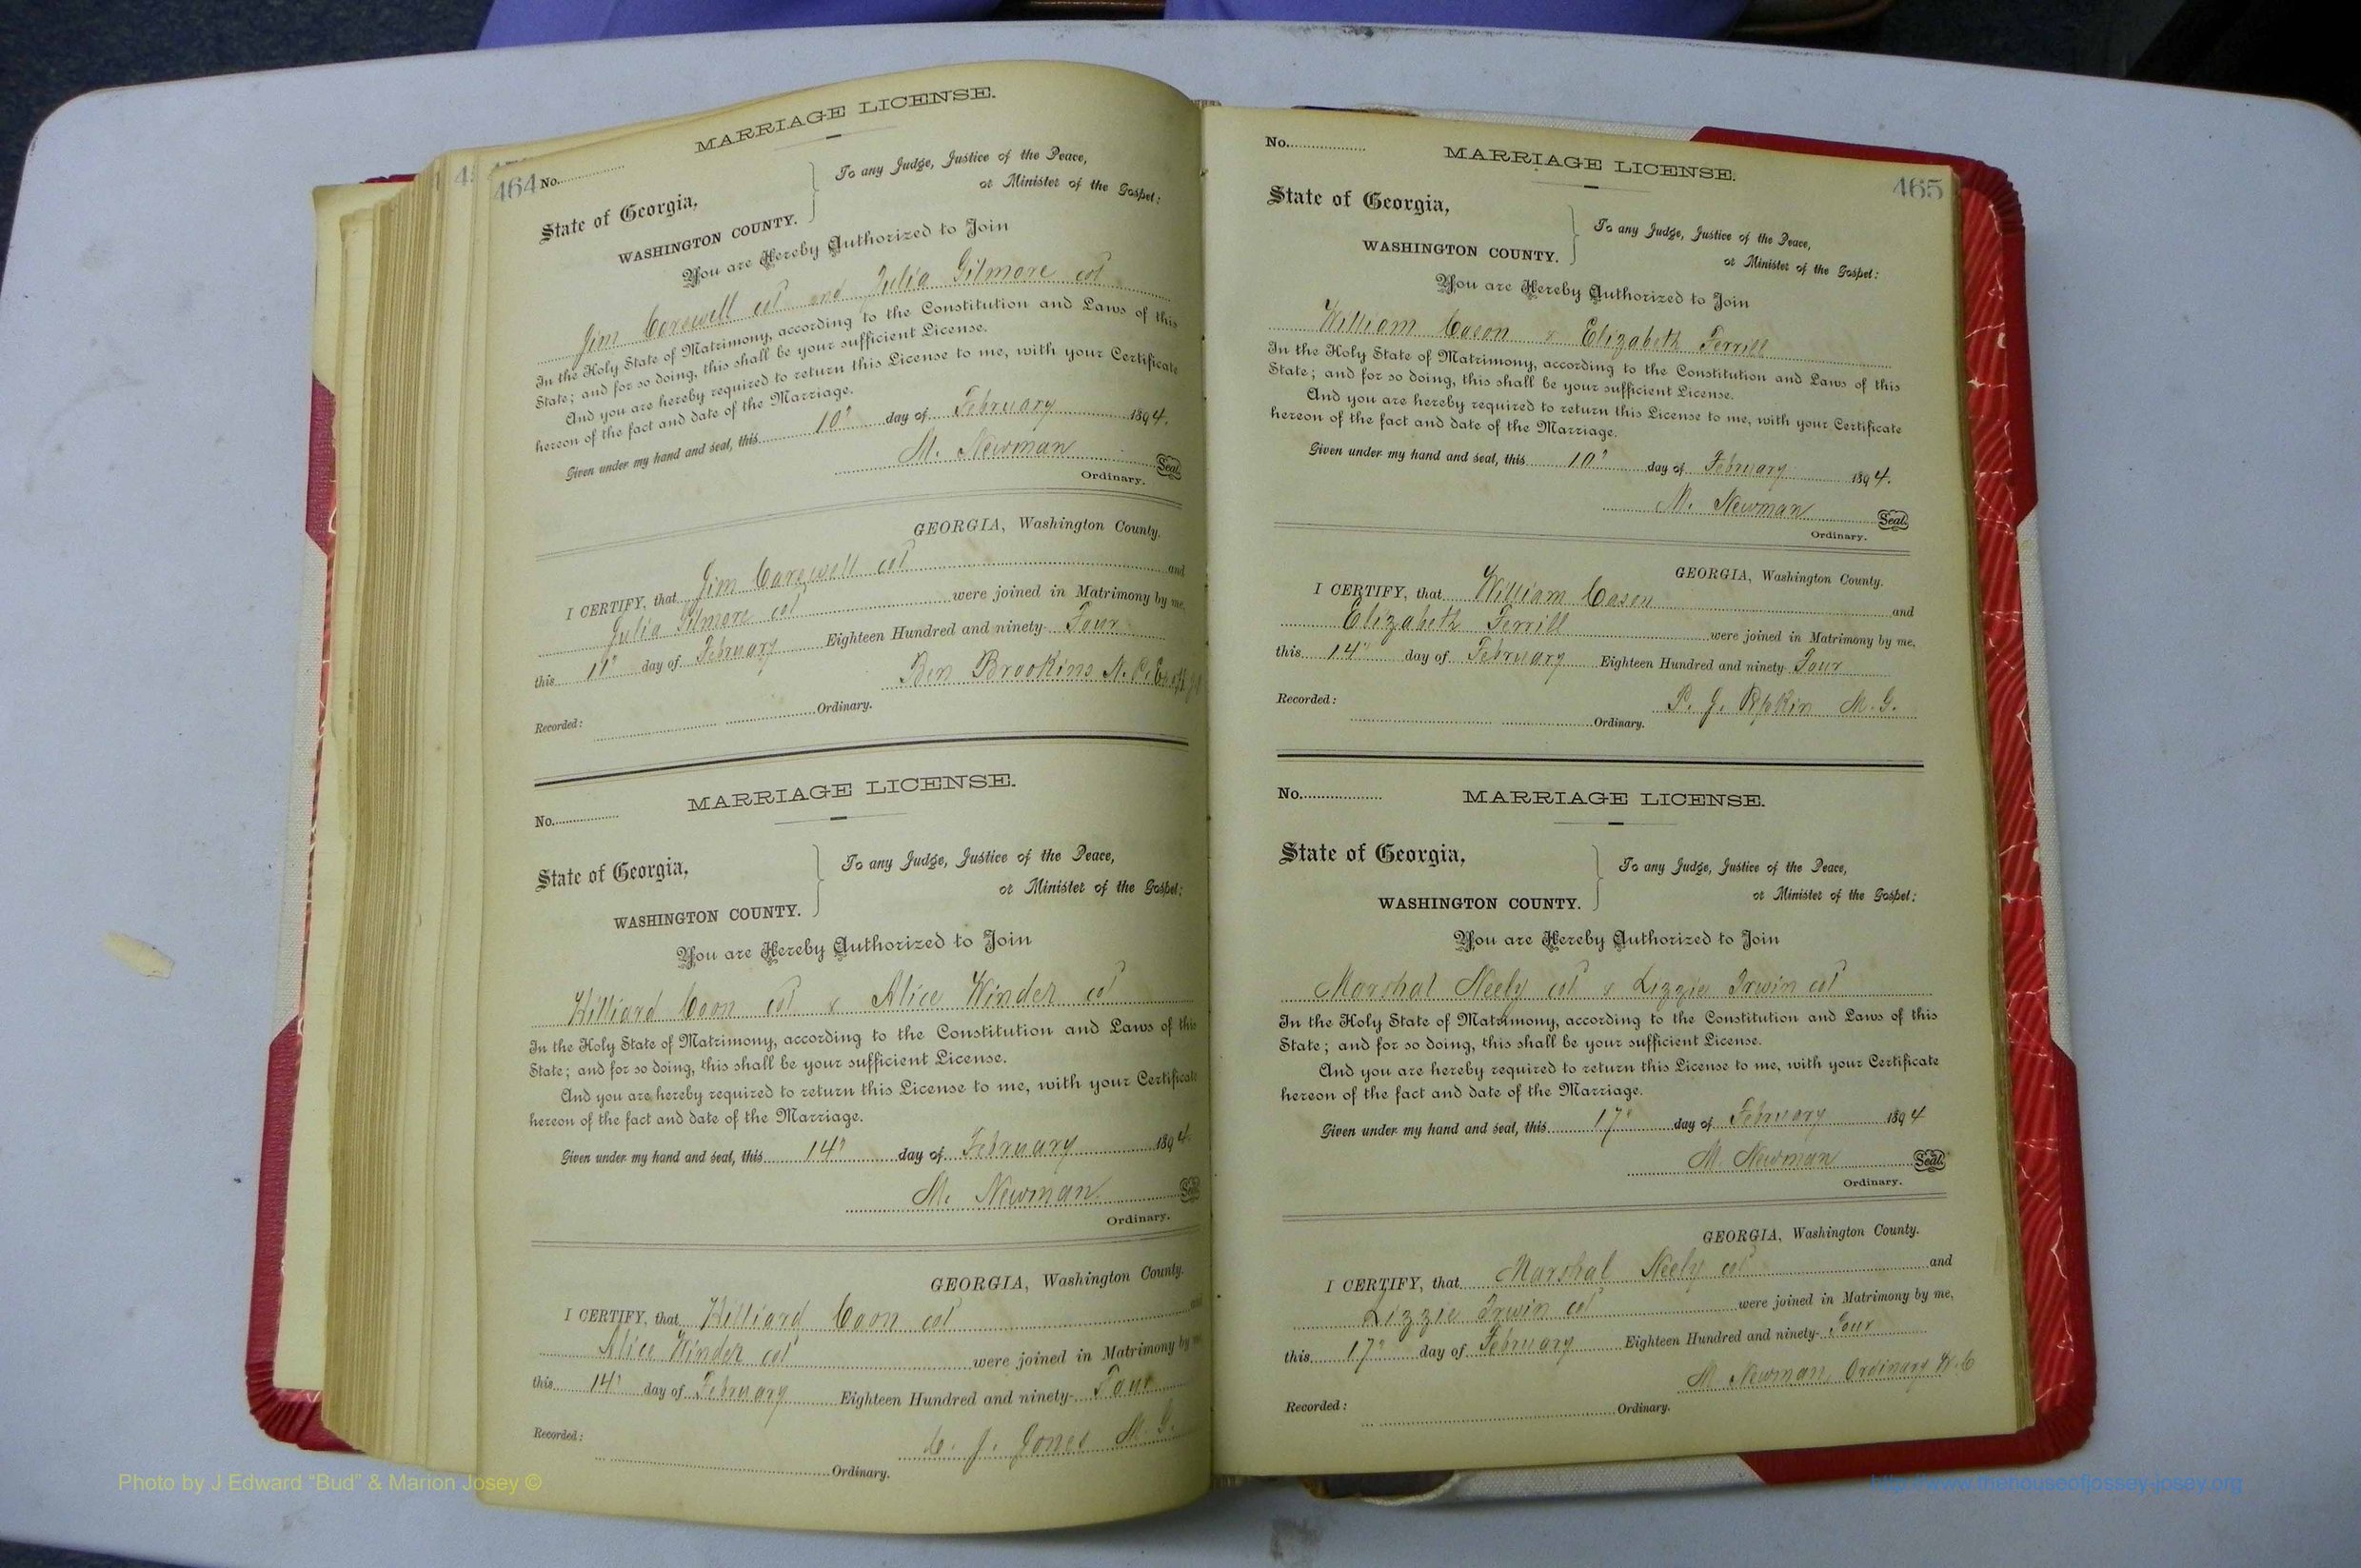 464 No.
MARRIAGE LICENSE.
State of Georgia,
WASHINGTON COUNTY.
To any Judge, Justice of the Peace,
or Minister of the Gospel:
You are Hereby Authorized to Join
Jim Carswell col and Julia Gilmore col
In the Holy State of Matrimony, according to the Constitution and Laws of this
State; and for so doing, this shall be your sufficient License.
And you are hereby required to return this License to me, with your Certificate
hereon of the fact and date of the Marriage.
Given under my hand and seal, this 10" day of February 1894.
M. Newman Seal
Ordinary.
GEORGIA, Washington County.
I CERTIFY, that Jim Carswell col and
Julia Gilmore col were joined in Matrimony by me,
this 11" day of February Eighteen Hundred and ninety-Four
Ben Brookins N.P.
Recorded: Ordinary.
MARRIAGE LICENSE.
No.
State of Georgia,
WASHINGTON COUNTY.
To any Judge, Justice of the Peace,
or Minister of the Gospel:
You are Hereby Authorized to Join
Hilliard Coon col & Alice Winder col
In the Holy State of Matrimony, according to the Constitution and Laws of this
State; and for so doing, this shall be your sufficient License.
And you are hereby required to return this License to me, with your Certificate
hereon of the fact and date of the Marriage.
Given under my hand and seal, this 14" day of February 1894
M. Newman Seal
Ordinary.
GEORGIA, Washington County.
I CERTIFY, that Hilliard Coon col and
Alice Winder col were joined in Matrimony by me
this 14" day of February Eighteen Hundred and ninety-Four
C. J. Jones M.G.
Recorded: Ordinary.
No.
MARRIAGE LICENSE.
465
State of Georgia,
WASHINGTON COUNTY.
To any Judge, Justice of the Peace,
or Minister of the Gospel:
You are Hereby Authorized to Join
William Cason & Elizabeth Ferrill
In the Holy State of Matrimony, according to the Constitution and Laws of this
State; and for so doing, this shall be your sufficient License.
And you are hereby required to return this License to me, with your Certificate
hereon of the fact and date of the Marriage.
Given under my hand and seal, this 10" day of February 1894.
M. Newman Seal.
Ordinary.
GEORGIA, Washington County.
I CERTIFY, that William Cason and
Elizabeth Ferrill were joined in Matrimony by me,
this 14" day of February Eighteen Hundred and ninety-Four
P. J. Pipkin M.G.
Recorded: Ordinary.
No.
MARRIAGE LICENSE.
State of Georgia,
WASHINGTON COUNTY.
To any Judge, Justice of the Peace,
or Minister of the Gospel:
You are Hereby Authorized to Join
Marshal Neely col & Lizzie Irwin col
In the Holy State of Matrimony, according to the Constitution and Laws of this
State; and for so doing, this shall be your sufficient License.
And you are hereby required to return this License to me, with your Certificate
hereon of the fact and date of the Marriage.
Given under my hand and seal, this 17" day of February 1894
M. Newman Seal.
Ordinary.
GEORGIA, Washington County.
I CERTIFY, that Marshal Neely col and
Lizzie Irwin col were joined in Matrimony by me,
this 17" day of February Eighteen Hundred and ninety-Four
M. Newman Ordinary W.C
Recorded: Ordinary.
Photo by J Edward “Bud” & Marion Josey ©
http://www.thehouseofjossey-josey.org